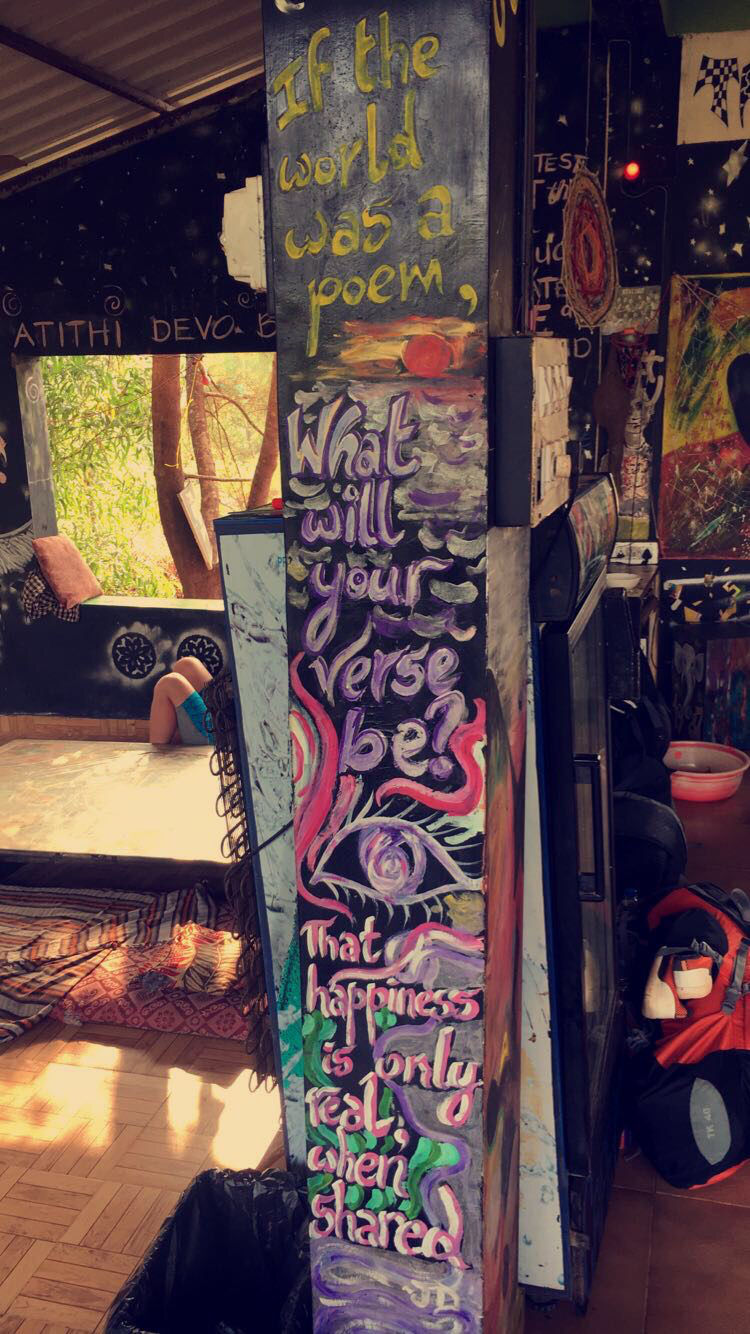 If the
world
was a
poem,
What
will
your
verse
be?
That
happiness
is only
real,
when
shared
ATITHI DEVO B
TEST
TK 40